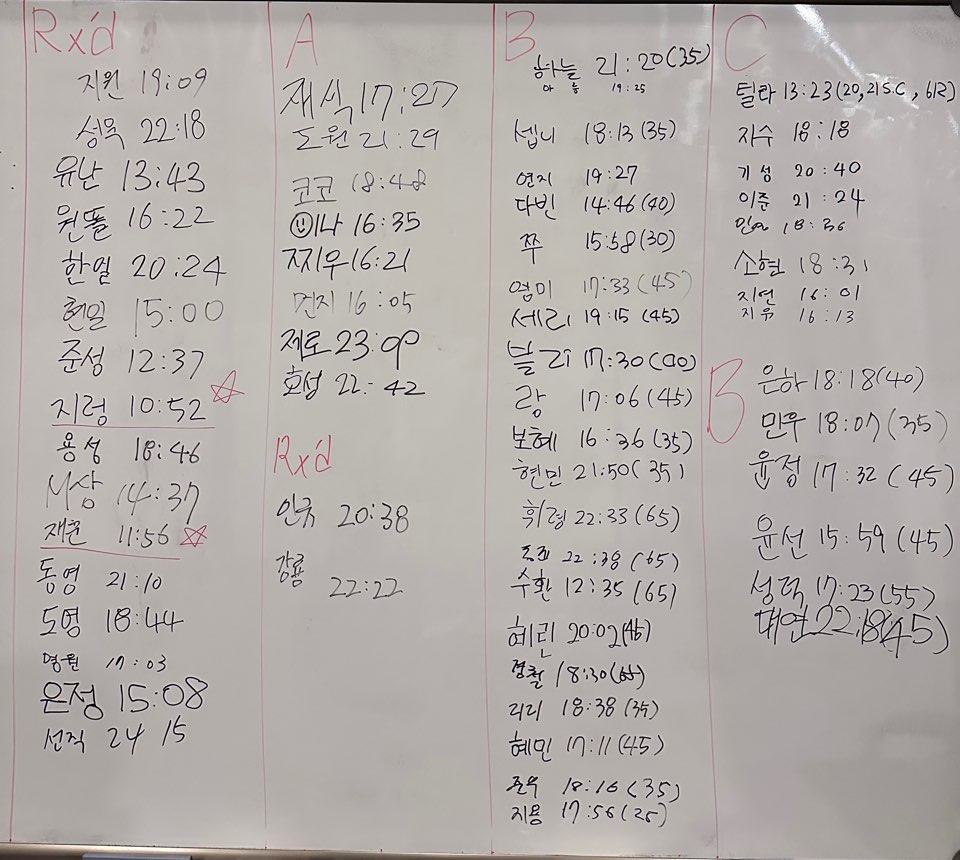 Rx'd
지원 19:09
성욱 22:18
유난 13:43
원똘 16:22
한일 20:24
현일 15:00
준성 12:37
지렁 10:52
용성 18:46
M상 14:37
재훈 11:56
동영 21:10
도영 18:44
영원 17:03
은정 15:08
선직 24 15
A
재식 17:27
도원 21:29
코코 18:48
미나 16:35
찌우 16:21
먼지 16:05
제로 23:09
효성 22:42
Rx'd
인규 20:38
강룡 22:22
B
하늘 21:20(35)
19:25
셉니 18:13(35)
연지 19:27
다빈 14:46(40)
쭈 15:58(30)
영미 17:33(45)
세리 19:15(45)
블리 17:30
랑 17:06(45)
보혜 16:36(35)
현민 21:50(35)
휘경 22:33(65)
22:38(65)
수환 12:35(65)
혜린 20:02(45)
경철 18:30
리리 18:38(35)
혜민 17:11(45)
준우 18:16(35)
지용 17:56(25)
C
틸라 13:23(20,21S.C, 61R)
지수 18:18
기성 20:40
이준 21:24
18:36
소현 18:31
지연 16:01
지유 16:13
B
은하 18:18(40)
민우 18:07(35)
윤정 17:32(45)
윤선 15:59(45)
성덕 17:23(55)
대연 22:18(45)